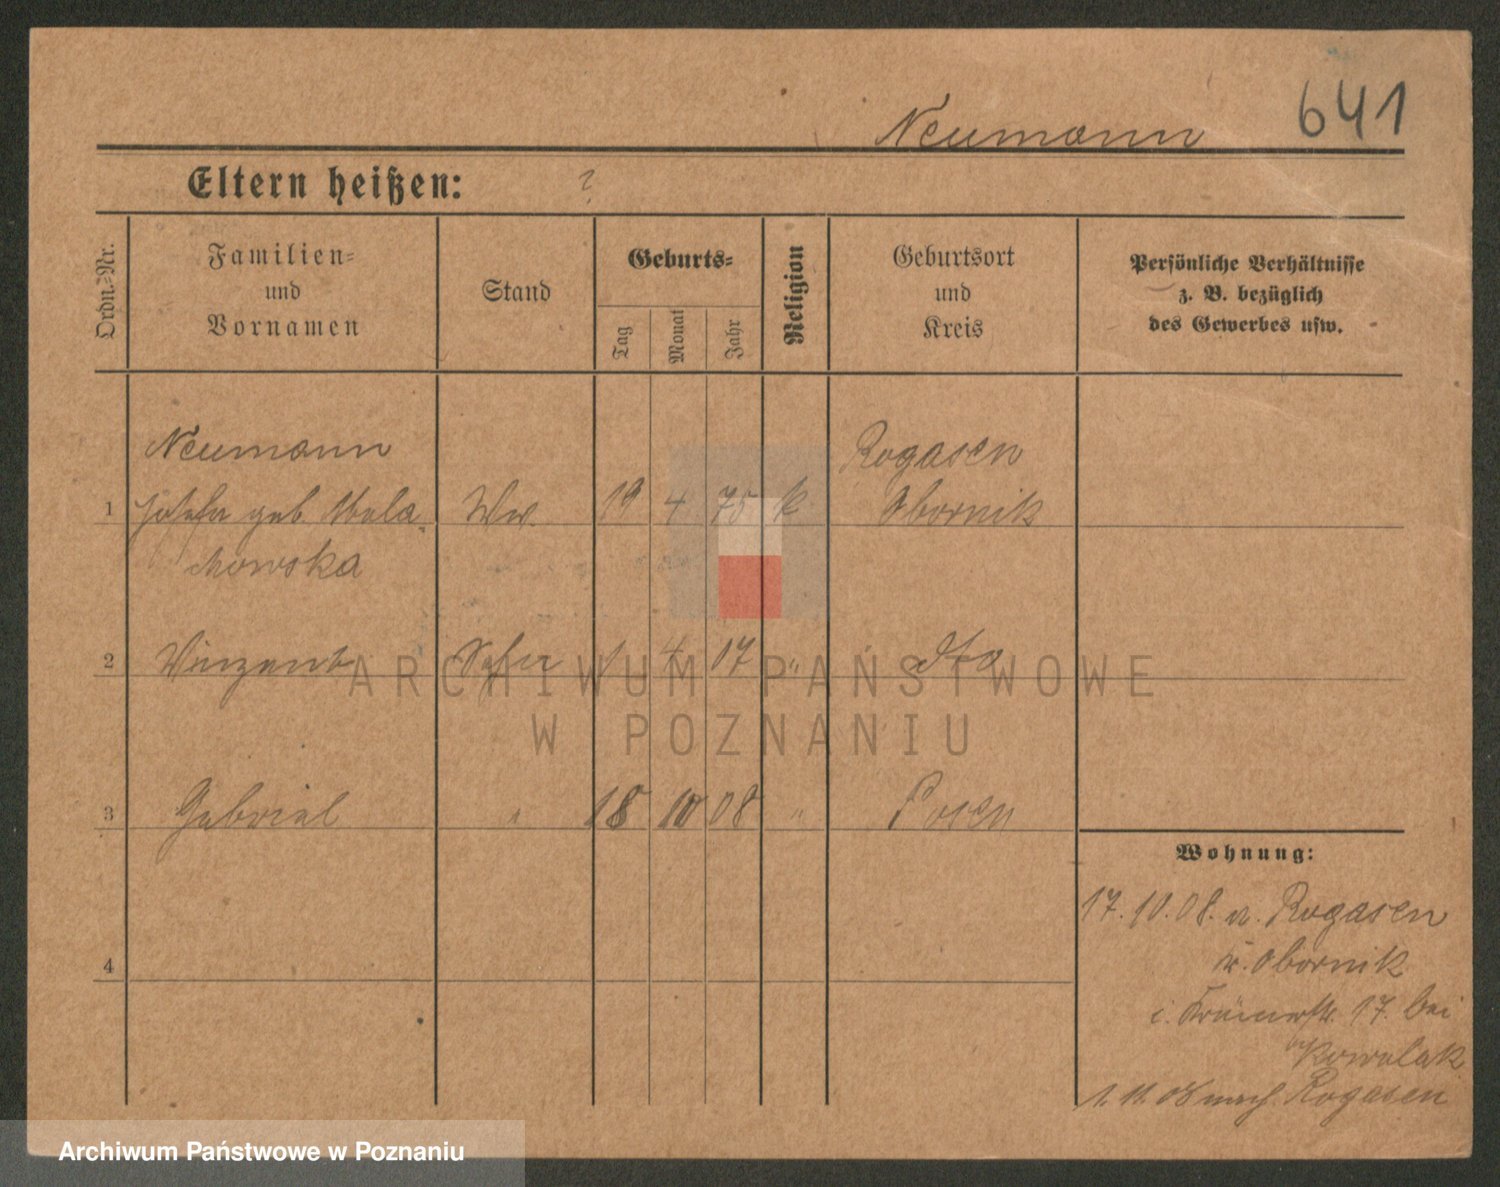 Neumann 641
Eltern heißen: ?
Ordn.-Nr.
Familien-
und
Vornamen
Stand
Geburts-
Tag
Monat
Jahr
Religion
Geburtsort
und
Kreis
Persönliche Verhältnisse
z. B. bezüglich
des Gewerbes usw.
Neumann Rogasen
1 Josefa geb Mala Ww. 19 4 75 k Obornik
chowska
2 Winzent Sohn 1 4 07 " dto
3 Gabriel " 18 10 08 " Posen
Wohnung:
17.10.08. v. Rogasen
Kr. Obornik
4
i. Krämerstr. 17. bei
Kowalak
1. 11. 08 nach Rogasen
ARCHIWUM PAŃSTWOWE
W POZNANIU
Archiwum Państwowe w Poznaniu